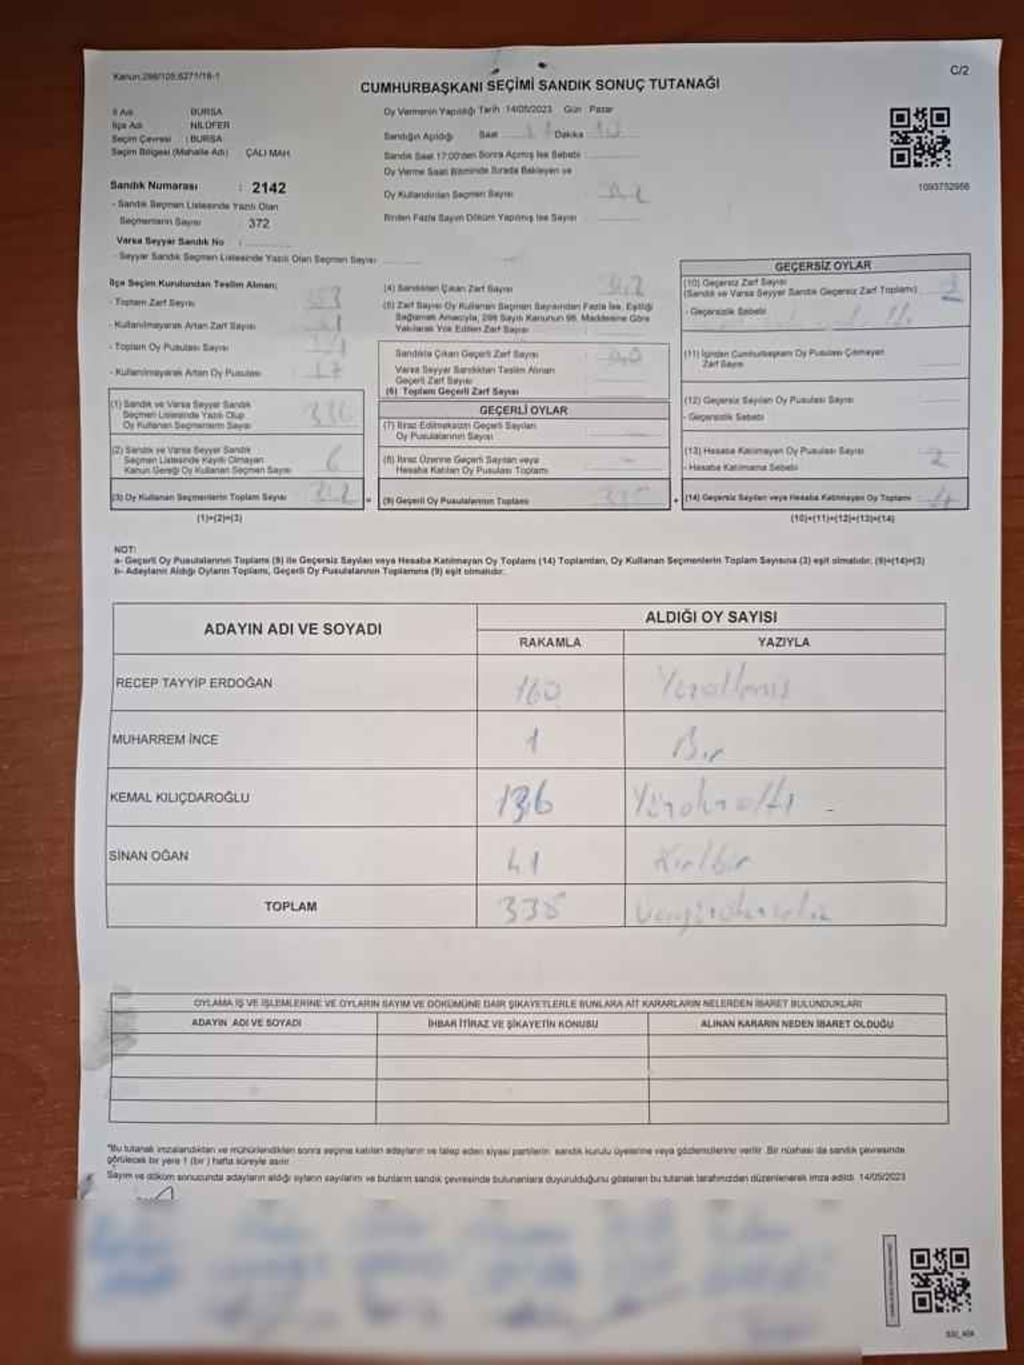 Kanun:298/105,6271/16-1
C/2
CUMHURBAŞKANI SEÇİMİ SANDIK SONUÇ TUTANAĞI
İl Adı BURSA
İlçe Adı NİLÜFER
Seçim Çevresi : BURSA
Seçim Bölgesi (Mahalle Adı) ÇALI MAH.
Oy Vermenin Yapıldığı Tarih 14/05/2023 Gün Pazar
Sandığın Açıldığı Saat Dakika
Sandık Saat 17:00'den Sonra Açılmış İse Sebebi :
Oy Verme Saati Bitiminde Sırada Bekleyen ve
Oy Kullandırılan Seçmen Sayısı
Birden Fazla Sayım Döküm Yapılmış İse Sayısı
1093752956
Sandık Numarası : 2142
- Sandık Seçmen Listesinde Yazılı Olan
Seçmenlerin Sayısı 372
Varsa Seyyar Sandık No :
- Seyyar Sandık Seçmen Listesinde Yazılı Olan Seçmen Sayısı
İlçe Seçim Kurulundan Teslim Alınan;
- Toplam Zarf Sayısı
- Kullanılmayarak Artan Zarf Sayısı
- Toplam Oy Pusulası Sayısı
- Kullanılmayarak Artan Oy Pusulası
(1) Sandık ve Varsa Seyyar Sandık
Seçmen Listesinde Yazılı Olup
Oy Kullanan Seçmenlerin Sayısı 336
(2) Sandık ve Varsa Seyyar Sandık
Seçmen Listesinde Kayıtlı Olmayan
Kanun Gereği Oy Kullanan Seçmen Sayısı 6
(3) Oy Kullanan Seçmenlerin Toplam Sayısı
(1)+(2)=(3)
(4) Sandıktan Çıkan Zarf Sayısı
(5) Zarf Sayısı Oy Kullanan Seçmen Sayısından Fazla İse, Eşitliği
Sağlamak Amacıyla, 298 Sayılı Kanunun 98. Maddesine Göre
Yakılarak Yok Edilen Zarf Sayısı
Sandıkta Çıkan Geçerli Zarf Sayısı
Varsa Seyyar Sandıktan Teslim Alınan
Geçerli Zarf Sayısı
(6) Toplam Geçerli Zarf Sayısı
GEÇERLİ OYLAR
(7) İtiraz Edilmeksizin Geçerli Sayılan
Oy Pusulalarının Sayısı
(8) İtiraz Üzerine Geçerli Sayılan veya
Hesaba Katılan Oy Pusulası Toplamı
= (9) Geçerli Oy Pusulalarının Toplamı
GEÇERSİZ OYLAR
(10) Geçersiz Zarf Sayısı
(Sandık ve Varsa Seyyar Sandık Geçersiz Zarf Toplamı)
- Geçersizlik Sebebi
(11) İçinden Cumhurbaşkanı Oy Pusulası Çıkmayan
Zarf Sayısı
(12) Geçersiz Sayılan Oy Pusulası Sayısı
- Geçersizlik Sebebi
(13) Hesaba Katılmayan Oy Pusulası Sayısı 2
- Hesaba Katılmama Sebebi
+ (14) Geçersiz Sayılan veya Hesaba Katılmayan Oy Toplamı 4
(10)+(11)+(12)+(13)=(14)
NOT:
a- Geçerli Oy Pusulalarının Toplamı (9) ile Geçersiz Sayılan veya Hesaba Katılmayan Oy Toplamı (14) Toplamları, Oy Kullanan Seçmenlerin Toplam Sayısına (3) eşit olmalıdır. (9)+(14)=(3)
b- Adayların Aldığı Oyların Toplamı, Geçerli Oy Pusulalarının Toplamına (9) eşit olmalıdır.
ADAYIN ADI VE SOYADI ALDIĞI OY SAYISI
RAKAMLA YAZIYLA
RECEP TAYYİP ERDOĞAN 160 Yüzaltmış
MUHARREM İNCE 1 Bir
KEMAL KILIÇDAROĞLU 136 Yüzotuzaltı
SİNAN OĞAN 41 Kırkbir
TOPLAM 338
OYLAMA İŞ VE İŞLEMLERİNE VE OYLARIN SAYIM VE DÖKÜMÜNE DAİR ŞİKAYETLERLE BUNLARA AİT KARARLARIN NELERDEN İBARET BULUNDUKLARI
ADAYIN ADI VE SOYADI İHBAR İTİRAZ VE ŞİKAYETİN KONUSU ALINAN KARARIN NEDEN İBARET OLDUĞU
*Bu tutanak imzalandıktan ve mühürlendikten sonra seçime katılan adayların ve talep eden siyasi partilerin sandık kurulu üyelerine veya gözlemcilerine verilir. Bir nüshası da sandık çevresinde
görülecek bir yere 1 (bir ) hafta süreyle asılır.
Sayım ve döküm sonucunda adayların aldığı oyların sayılarını ve bunların sandık çevresinde bulunanlara duyurulduğunu gösteren bu tutanak tarafımızdan düzenlenerek imza edildi. 14/05/2023